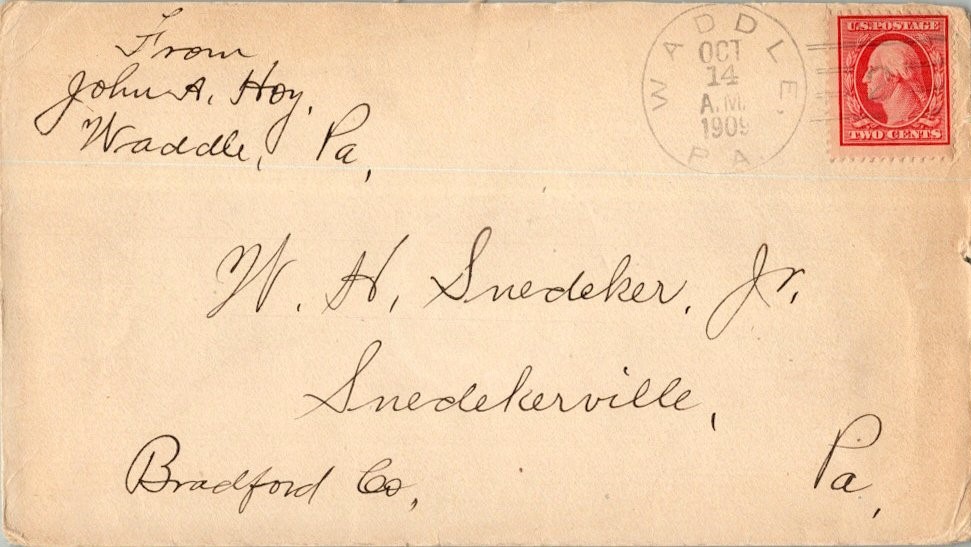 From
John A. Hoy,
Waddle, Pa,
WADDLE,
OCT
14
A.M.
1909
PA
U.S. POSTAGE
2
TWO CENTS
W. H. Snedeker, Jr,
Snedekerville,
Bradford Co, Pa,